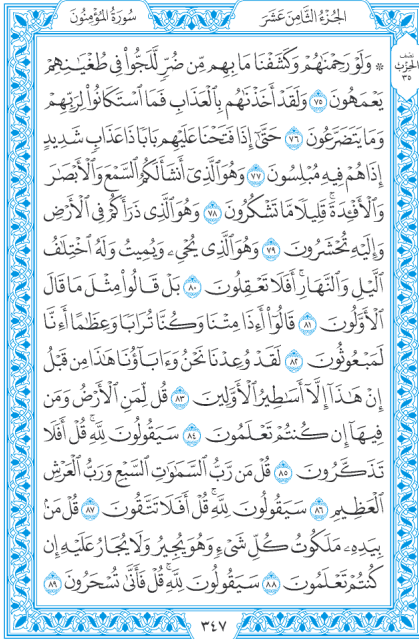 الجُزْءُ الثَّامِنَ عَشَرَ
سُورَةُ المُؤْمِنُونَ
۞ وَلَوْ رَحِمْنَٰهُمْ وَكَشَفْنَا مَا بِهِم مِّن ضُرٍّ لَّلَجُّوا۟ فِى طُغْيَٰنِهِمْ
يَعْمَهُونَ ٧٥ وَلَقَدْ أَخَذْنَٰهُم بِٱلْعَذَابِ فَمَا ٱسْتَكَانُوا۟ لِرَبِّهِمْ
وَمَا يَتَضَرَّعُونَ ٧٦ حَتَّىٰٓ إِذَا فَتَحْنَا عَلَيْهِم بَابًا ذَا عَذَابٍ شَدِيدٍ
إِذَا هُمْ فِيهِ مُبْلِسُونَ ٧٧ وَهُوَ ٱلَّذِىٓ أَنشَأَ لَكُمُ ٱلسَّمْعَ وَٱلْأَبْصَٰرَ
وَٱلْأَفْـِٔدَةَ ۚ قَلِيلًا مَّا تَشْكُرُونَ ٧٨ وَهُوَ ٱلَّذِى ذَرَأَكُمْ فِى ٱلْأَرْضِ
وَإِلَيْهِ تُحْشَرُونَ ٧٩ وَهُوَ ٱلَّذِى يُحْىِۦ وَيُمِيتُ وَلَهُ ٱخْتِلَٰفُ
ٱلَّيْلِ وَٱلنَّهَارِ ۚ أَفَلَا تَعْقِلُونَ ٨٠ بَلْ قَالُوا۟ مِثْلَ مَا قَالَ
ٱلْأَوَّلُونَ ٨١ قَالُوٓا۟ أَءِذَا مِتْنَا وَكُنَّا تُرَابًا وَعِظَٰمًا أَءِنَّا
لَمَبْعُوثُونَ ٨٢ لَقَدْ وُعِدْنَا نَحْنُ وَءَابَآؤُنَا هَٰذَا مِن قَبْلُ
إِنْ هَٰذَآ إِلَّآ أَسَٰطِيرُ ٱلْأَوَّلِينَ ٨٣ قُل لِّمَنِ ٱلْأَرْضُ وَمَن
فِيهَآ إِن كُنتُمْ تَعْلَمُونَ ٨٤ سَيَقُولُونَ لِلَّهِ ۚ قُلْ أَفَلَا
تَذَكَّرُونَ ٨٥ قُلْ مَن رَّبُّ ٱلسَّمَٰوَٰتِ ٱلسَّبْعِ وَرَبُّ ٱلْعَرْشِ
ٱلْعَظِيمِ ٨٦ سَيَقُولُونَ لِلَّهِ ۚ قُلْ أَفَلَا تَتَّقُونَ ٨٧ قُلْ مَنۢ
بِيَدِهِۦ مَلَكُوتُ كُلِّ شَىْءٍ وَهُوَ يُجِيرُ وَلَا يُجَارُ عَلَيْهِ إِن
كُنتُمْ تَعْلَمُونَ ٨٨ سَيَقُولُونَ لِلَّهِ ۚ قُلْ فَأَنَّىٰ تُسْحَرُونَ ٨٩
نصف
الحزب
٣٥
٣٤٧